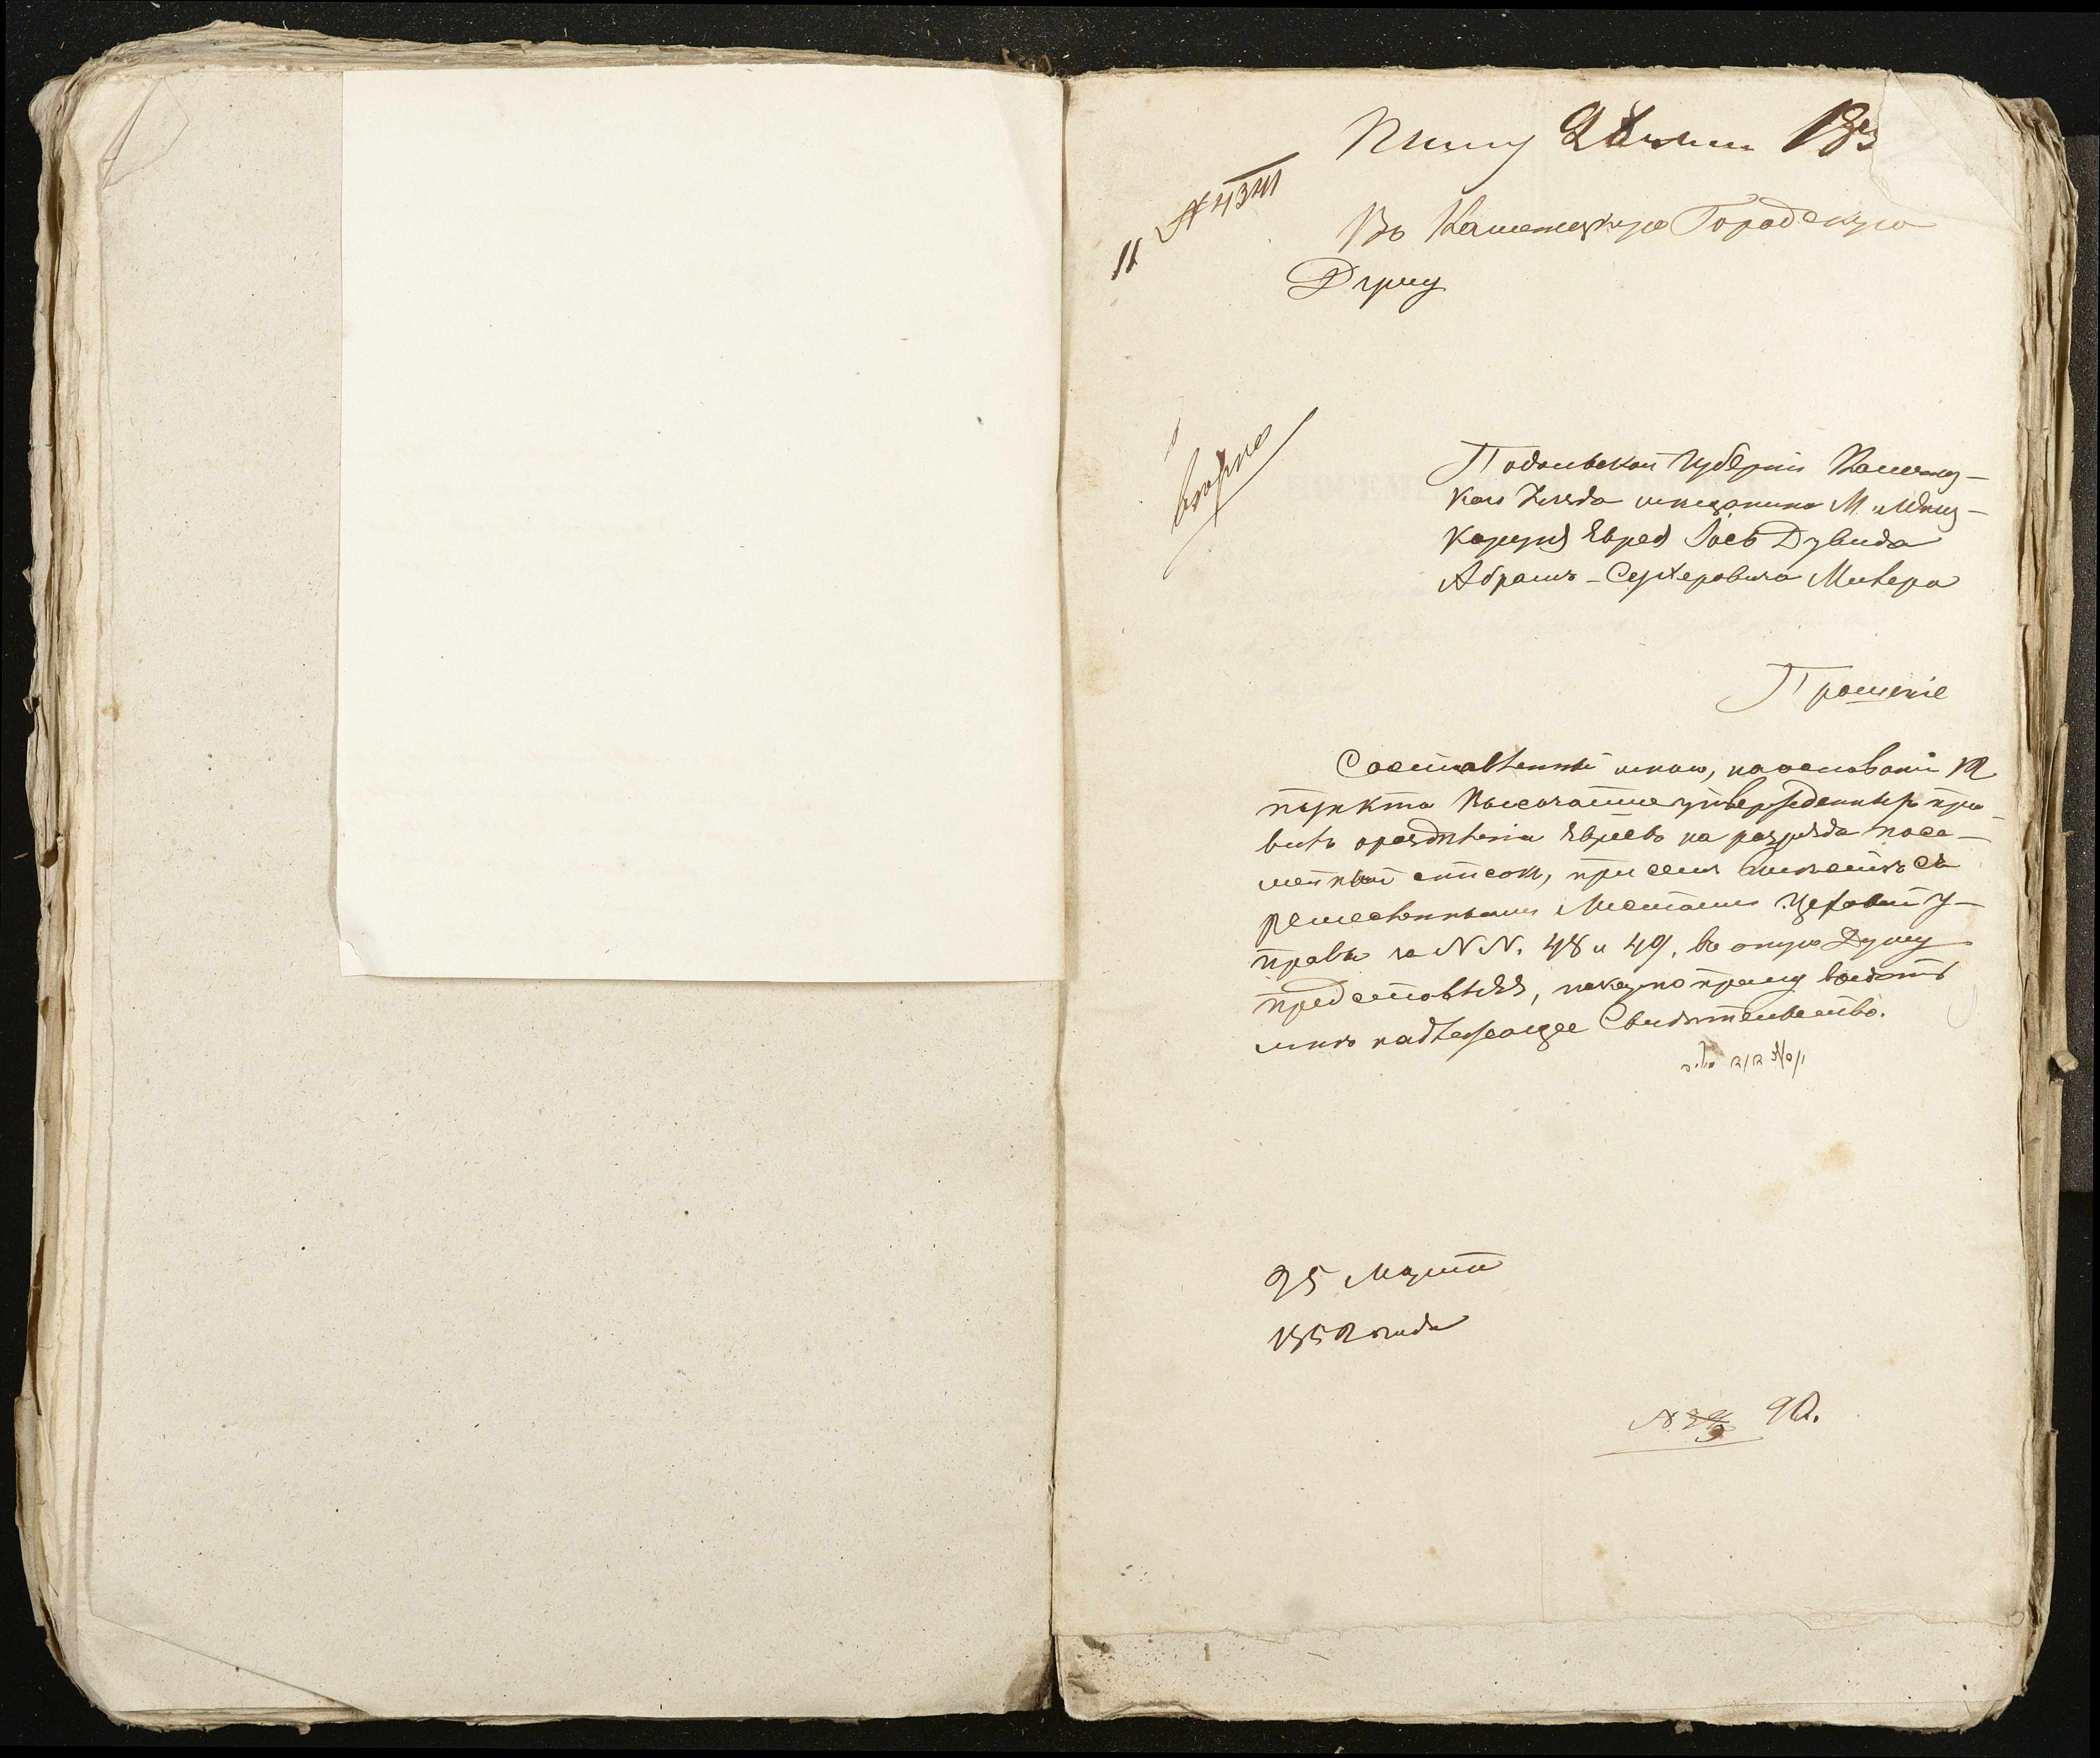 № 4341
11
Въ Каменецкую Городскую
Думу
Подольской Губерніи Каменец-
каго Уѣзда мѣщанина М.
Еврея Іось Дувида
Абрамъ-Сухеровича Милера
Прошеніе
Составленный мною, на основаніи 12
пункта Высочайше утвержденныхъ пра-
вилъ о раздѣленіи Евреевъ на разряды посе-
мейный списокъ, при семъ вмѣстѣ съ
ремесленными Листами Цеховой У-
правы за NN. 48 и 49. въ оную Думу
представляя, покорно прошу выдать
мнѣ надлежащее Свидѣтельство.
25 Марта
1852 года
№ 92.